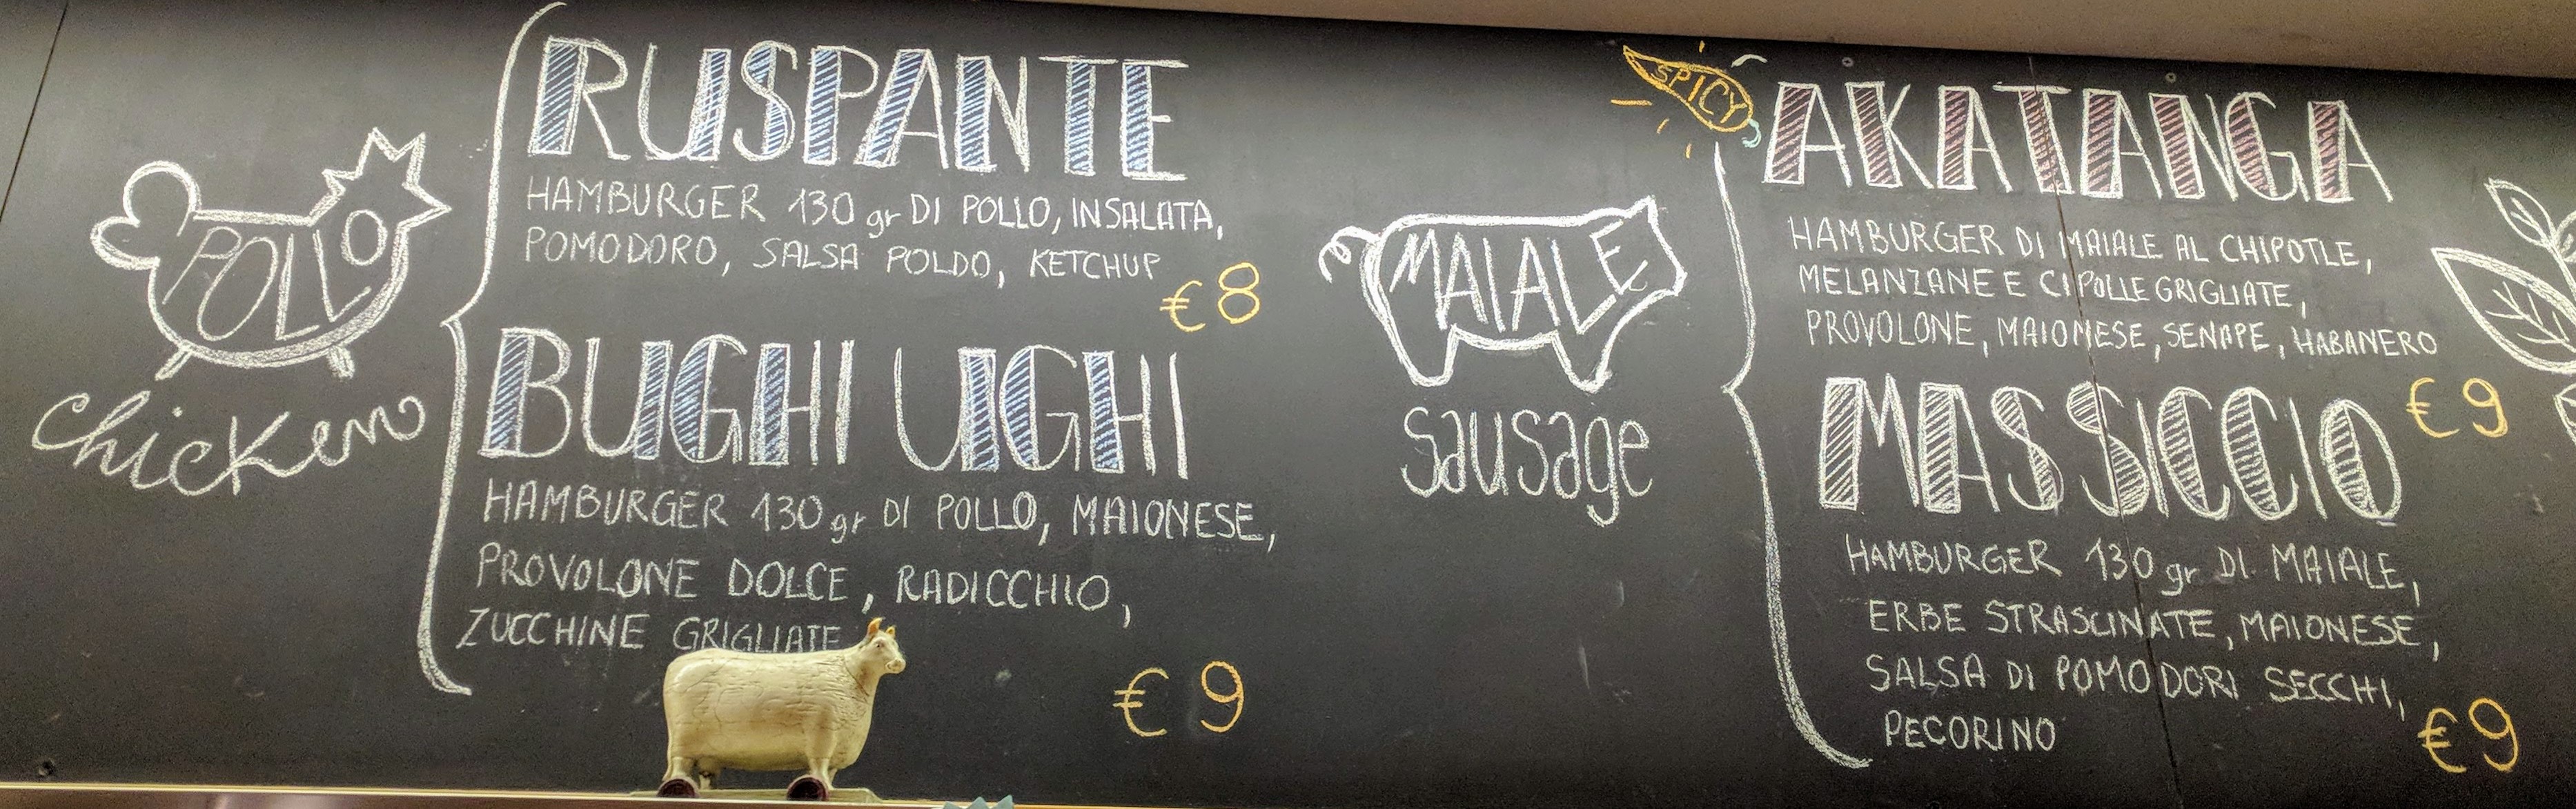 POLLO
chicken
RUSPANTE
HAMBURGER 130 gr DI POLLO, INSALATA,
POMODORO, SALSA POLDO, KETCHUP
€ 8
BUGHI UGHI
HAMBURGER 130 gr DI POLLO, MAIONESE,
PROVOLONE DOLCE, RADICCHIO,
ZUCCHINE GRIGLIATE
€ 9
MAIALE
sausage
SPICY
AKATANGA
HAMBURGER DI MAIALE AL CHIPOTLE,
MELANZANE E CIPOLLE GRIGLIATE,
PROVOLONE, MAIONESE, SENAPE, HABANERO
€ 9
MASSICCIO
HAMBURGER 130 gr DI MAIALE,
ERBE STRASCINATE, MAIONESE,
SALSA DI POMODORI SECCHI,
PECORINO
€ 9